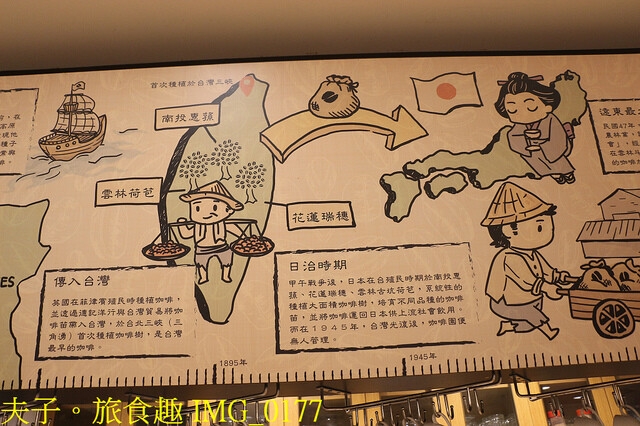 首次種植於台灣三峽
南投惠蓀
雲林荷苞
花蓮瑞穗
傳入台灣
英國在菲律賓殖民時種植咖啡,
並透過德記洋行與台灣貿易將咖
啡苗帶入台灣,於台北三峽(三
角湧)首次種植咖啡樹,是台灣
最早的咖啡。
日治時期
甲午戰爭後,日本在台殖民時期於南投惠
蓀、花蓮瑞穗、雲林古坑荷苞,系統性的
種植大面積咖啡樹,培育不同品種的咖啡
苗,並將咖啡運回日本供上流社會飲用。
而在1945年,台灣光復後,咖啡園便
無人管理。
遠東最
民國47年,
農林會,
會」,
在雲林
的咖啡
ES
1895年
1945年
夫子。旅食趣 IMG_0177